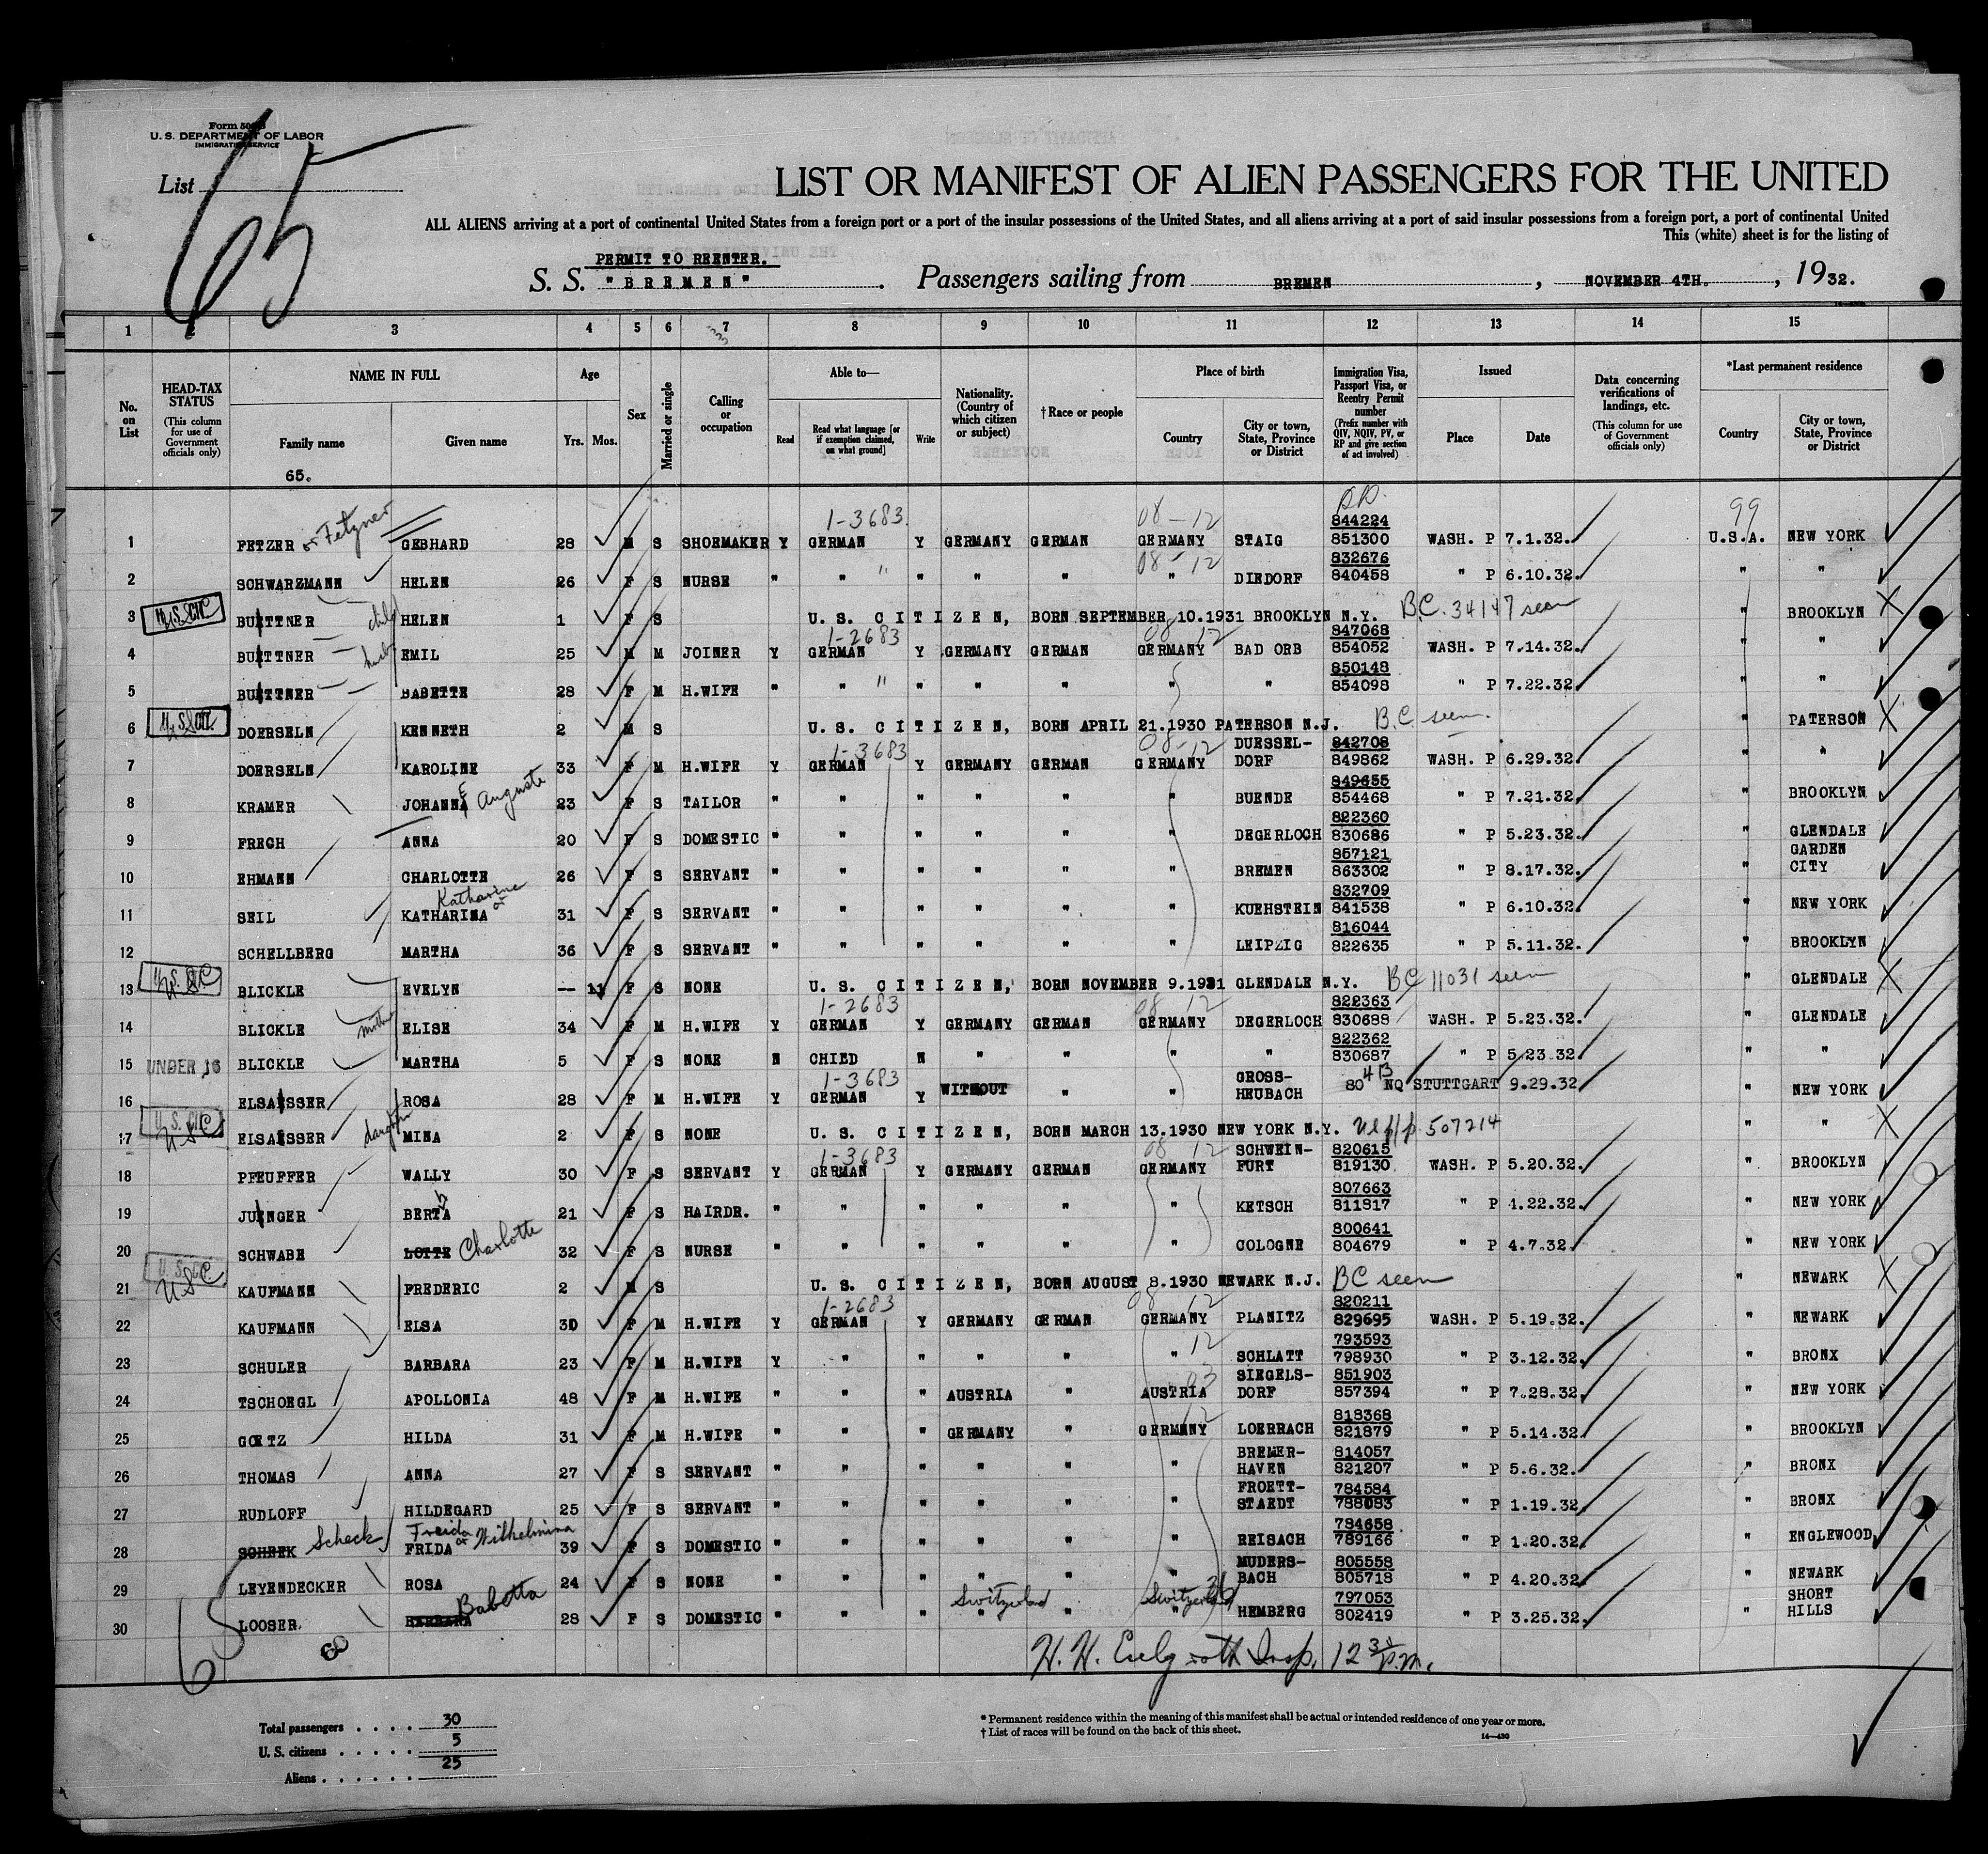 Form 500 B
U. S. DEPARTMENT OF LABOR
IMMIGRATION SERVICE
List 65
LIST OR MANIFEST OF ALIEN PASSENGERS FOR THE UNITED
ALL ALIENS arriving at a port of continental United States from a foreign port or a port of the insular possessions of the United States, and all aliens arriving at a port of said insular possessions from a foreign port, a port of continental United
This (white) sheet is for the listing of
PERMIT TO REENTER.
S. S. "BREMEN". Passengers sailing from BREMEN, NOVEMBER 4TH., 1932.
1 2 3 4 5 6 7 8 9 10 11 12 13 14 15
No. on List
HEAD-TAX STATUS (This column for use of Government officials only)
NAME IN FULL Family name Given name
65.
Age Yrs. Mos.
Sex
Married or single
Calling or occupation
Able to— Read Read what language [or if exemption claimed, on what ground] Write
Nationality. (Country of which citizen or subject)
† Race or people
Place of birth Country City or town, State, Province or District
Immigration Visa, Passport Visa, or Reentry Permit number (Prefix number with QIV, NQIV, PV, or RP and give section of act involved)
Issued Place Date
Data concerning verifications of landings, etc. (This column for use of Government officials only)
*Last permanent residence Country City or town, State, Province or District
1-3683 08-12 99
844224
1 FETZER or Fetzner GEBHARD 28 M S SHOEMAKER Y GERMAN Y GERMANY GERMAN GERMANY STAIG 851300 WASH. P 7.1.32. U.S.A. NEW YORK
08-12 832676
2 SCHWARZMANN HELEN 26 F S NURSE " " " " " DIEDORF 840458 " P 6.10.32. " "
3 U.S. CIT BUETTNER child HELEN 1 F S U. S. CITIZEN, BORN SEPTEMBER 10.1931 BROOKLYN N.Y. B.C. 34147 seen " BROOKLYN X
1-2683 08 12 847068
4 BUETTNER husb EMIL 25 M M JOINER Y GERMAN Y GERMANY GERMAN GERMANY BAD ORB 854052 WASH. P 7.14.32. " "
850148
5 BUETTNER BABETTE 28 F M H.WIFE " " " " " " " 854098 " P 7.22.32. " "
6 U.S. CIT DOERSELN KENNETH 2 M S U. S. CITIZEN, BORN APRIL 21.1930 PATERSON N.J. B.C. seen. " PATERSON X
1-3683 08-12 DUESSEL- 842708
7 DOERSELN KAROLINE 33 F M H.WIFE Y GERMAN Y GERMANY GERMAN GERMANY DORF 849862 WASH. P 6.29.32. " "
849655
8 KRAMER JOHANNA Auguste 23 F S TAILOR " " " " " " BUENDE 854468 " P 7.21.32. " BROOKLYN
822360
9 FRECH ANNA 20 F S DOMESTIC " " " " " " DEGERLOCH 830686 " P 5.23.32. " GLENDALE
857121 GARDEN
10 EHMANN CHARLOTTE 26 F S SERVANT " " " " " " BREMEN 863302 " P 8.17.32. " CITY
Katharine or 832709
11 SEIL KATHARINA 31 F S SERVANT " " " " " " KUEHSTEIN 841538 " P 6.10.32. " NEW YORK
816044
12 SCHELLBERG MARTHA 36 F S SERVANT " " " " " " LEIPZIG 822635 " P 5.11.32. " BROOKLYN
13 U.S. CIT BLICKLE EVELYN — 11 F S NONE U. S. CITIZEN, BORN NOVEMBER 9.1931 GLENDALE N.Y. BC 11031 seen " GLENDALE X
1-2683 08 12 822363
14 BLICKLE mother ELISE 34 F M H.WIFE Y GERMAN Y GERMANY GERMAN GERMANY DEGERLOCH 830688 WASH. P 5.23.32. " GLENDALE
822362
15 UNDER 16 BLICKLE MARTHA 5 F S NONE N CHIED N " " " " 830687 " P 5.23.32 " "
1-3683 GROSS-
16 ELSAESSER ROSA 28 F M H.WIFE Y GERMAN Y WITHOUT " " HEUBACH 80 4 B NQ STUTTGART 9.29.32 " NEW YORK
17 U.S. CIT USC ELSAESSER daughter MINA 2 F S NONE U. S. CITIZEN, BORN MARCH 13.1930 NEW YORK N.Y. 507214 " " X
1-3683 08 12 SCHWEIN- 820615
18 PFEUFFER WALLY 30 F S SERVANT Y GERMAN Y GERMANY GERMAN GERMANY FURT 819130 WASH. P 5.20.32. " BROOKLYN
807663
19 JUENGER BERTA h 21 F S HAIRDR. " " " " " " KETSCH 811817 " P 4.22.32. " NEW YORK
800641
20 SCHWABE LOTTE Charlotte 32 F S NURSE " " " " " " COLOGNE 804679 " P 4.7.32. " NEW YORK
21 U.S. CIT USC KAUFMANN FREDERIC 2 M S U. S. CITIZEN, BORN AUGUST 8.1930 NEWARK N.J. BC seen " NEWARK X
1-2683 08 12 820211
22 KAUFMANN ELSA 30 F M H.WIFE Y GERMAN Y GERMANY GERMAN GERMANY PLANITZ 829695 WASH. P 5.19.32. " NEWARK
12 793593
23 SCHULER BARBARA 23 F M H.WIFE Y " " " " " SCHLATT 798930 " P 3.12.32. " BRONX
03 SIEGELS- 851903
24 TSCHOEGL APOLLONIA 48 F M H.WIFE " " " AUSTRIA " AUSTRIA DORF 857394 " P 7.28.32. " NEW YORK
12 818368
25 GOETZ HILDA 31 F M H.WIFE " " " GERMANY " GERMANY LOERRACH 821879 " P 5.14.32. " BROOKLYN
BREMER- 814057
26 THOMAS ANNA 27 F S SERVANT " " " " " " HAVEN 821207 " P 5.6.32. " BRONX
FROETT- 784584
27 RUDLOFF HILDEGARD 25 F S SERVANT " " " " " " STAEDT 788083 " P 1.19.32. " BRONX
Freida or Wilhelmina 784658
28 SCHEEK Scheck FRIDA 39 F S DOMESTIC " " " " " " REISACH 789166 " P 1.20.32. " ENGLEWOOD
MUDERS- 805558
29 LEYENDECKER ROSA 24 F S NONE " " " " " " BACH 805718 " P 4.20.32. " NEWARK
Switzerland Switzerland 36 797053 SHORT
30 LOOSER BARBARA Babetta 28 F S DOMESTIC " " " " " " HEMBERG 802419 " P 3.25.32. " HILLS
65
H. H. Insp. 12 p.m.
Total passengers . . . . 30
U. S. citizens . . . . . 5
Aliens . . . . . . 25
* Permanent residence within the meaning of this manifest shall be actual or intended residence of one year or more.
† List of races will be found on the back of this sheet.
14—430